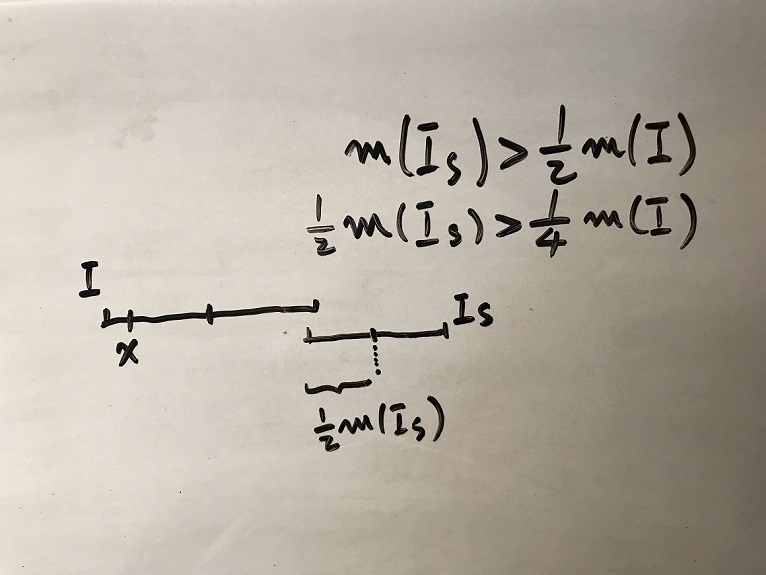 m(I_s) > 1/2 m(I)
1/2 m(I_s) > 1/4 m(I)
I
x
I_s
1/2 m(I_s)